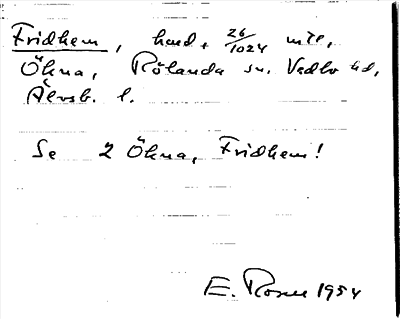 Fridhem, hmd, 26/1024 mtl,
Öhna, Rölanda sn. Vedbo hd,
Älvsb. l.
Se 2 Öhna, Fridhem!
E. Rosen 1954